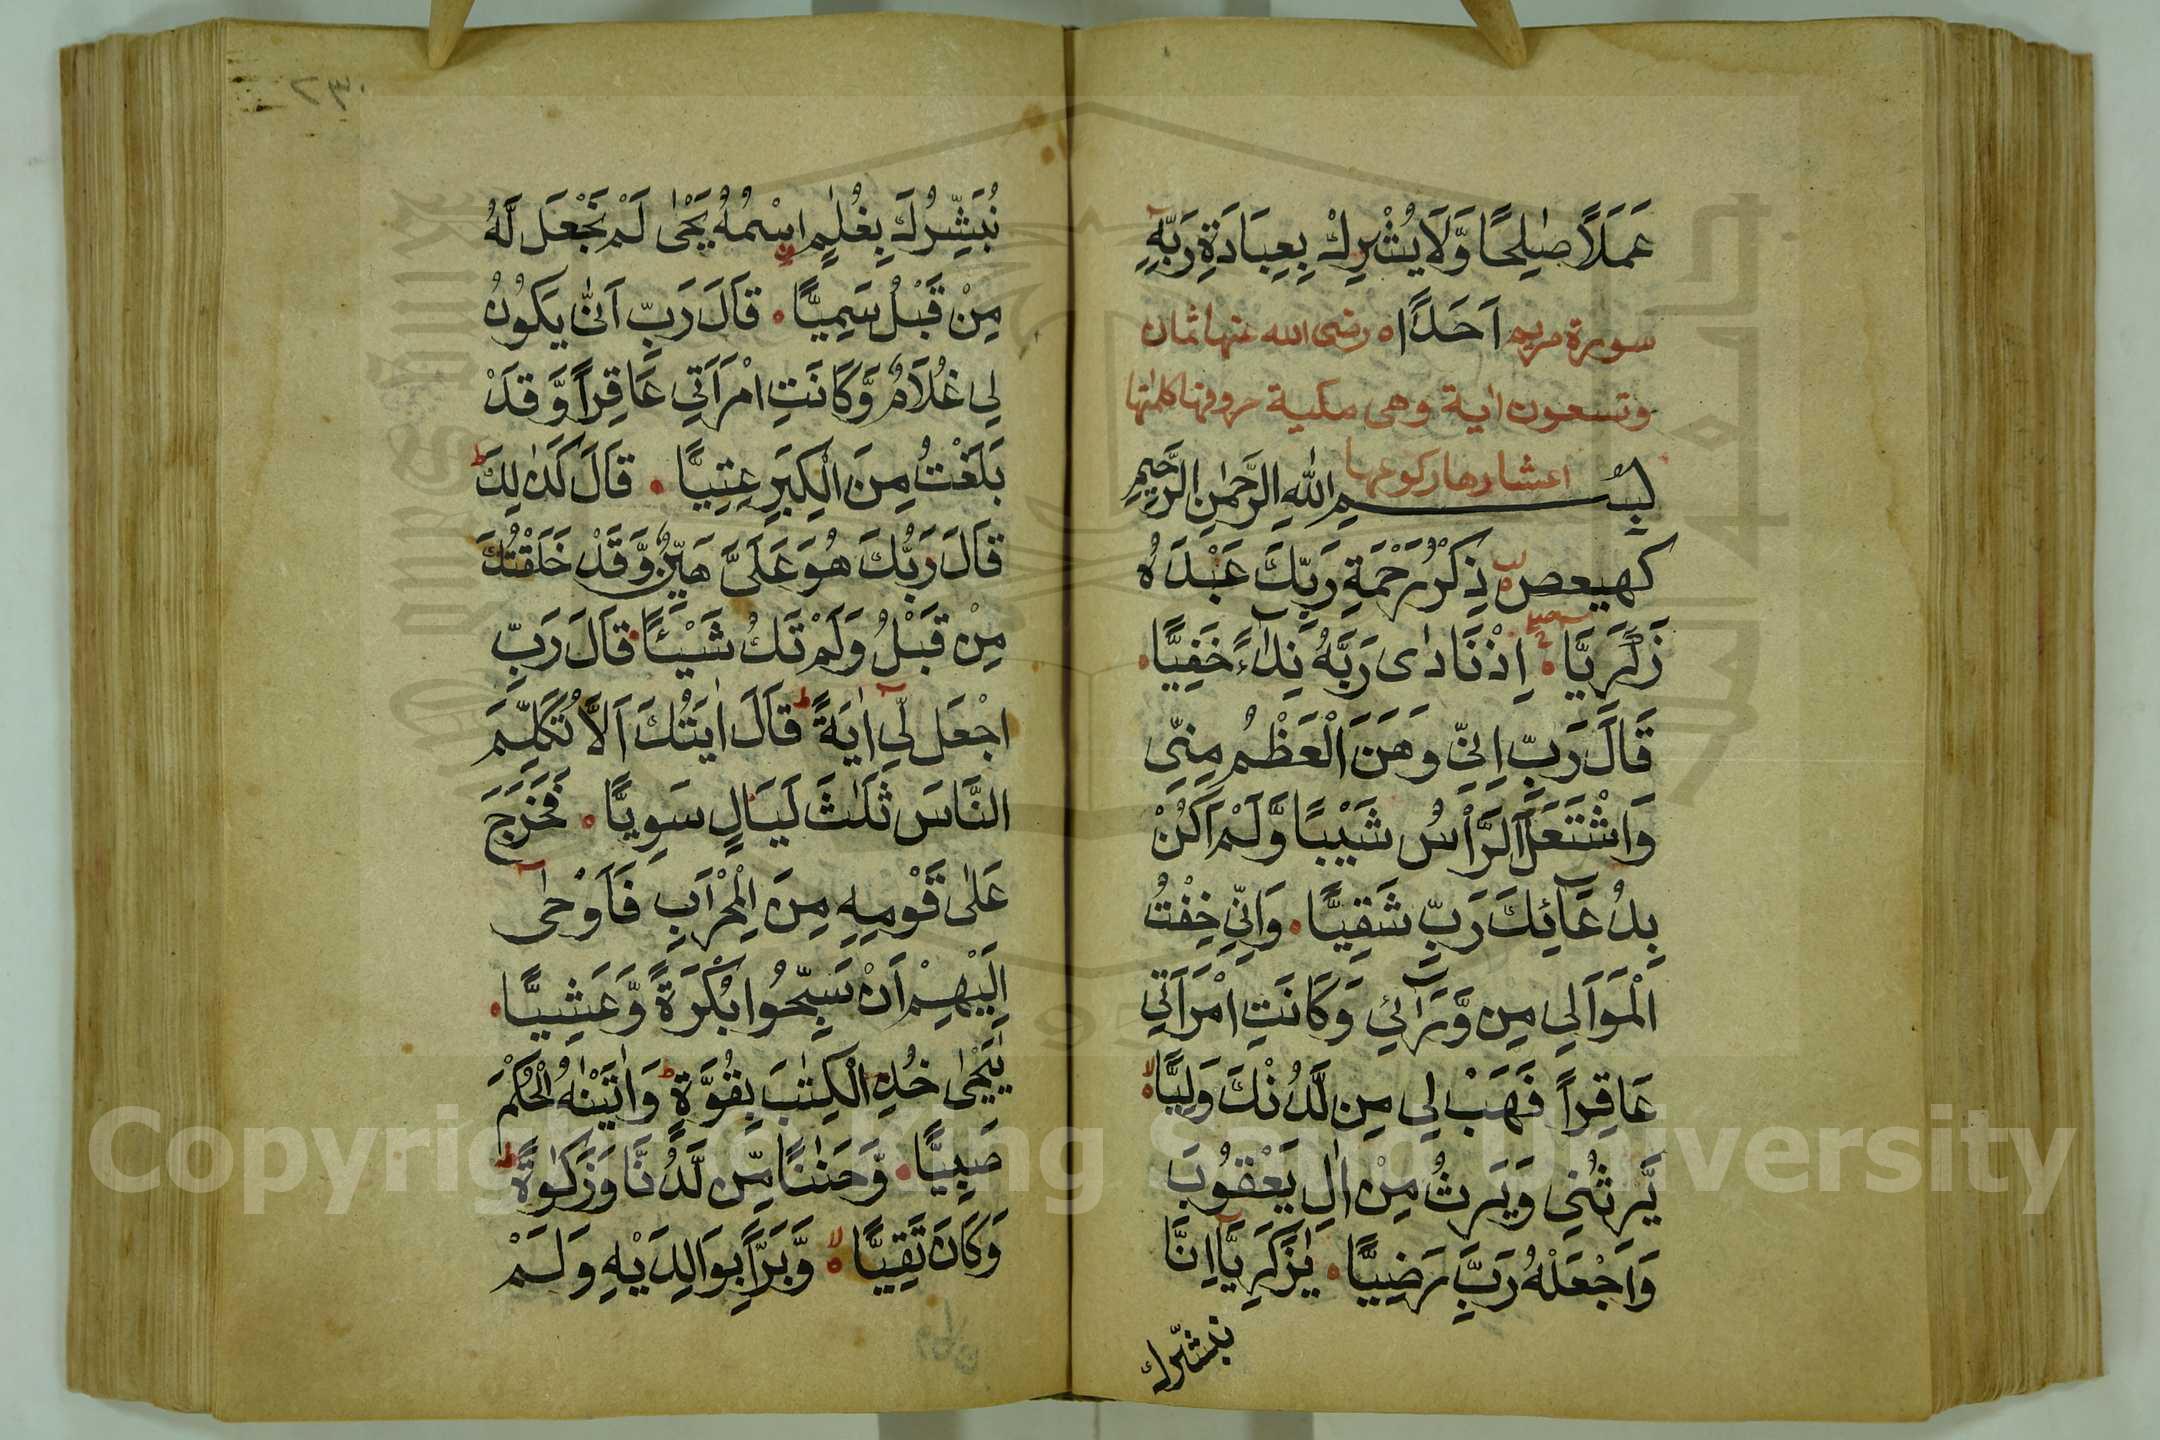 عَمَلًا صٰلِحًا وَّلَا يُشْرِكْ بِعِبَادَةِ رَبِّهٖ
سورة مريم اَحَدًا رضى الله عنها ثمان
وتسعون اية وهى مكية حروفها كلمتها
اعشارها ركوعها
بِسْمِ اللّٰهِ الرَّحْمٰنِ الرَّحِيْمِ
كهيعص ذِكْرُ رَحْمَةِ رَبِّكَ عَبْدَهُ
زَكَرِيَّا اِذْ نَادٰى رَبَّهُ نِدَآءً خَفِيًّا
قَالَ رَبِّ اِنِّي وَهَنَ الْعَظْمُ مِنِّي
وَاشْتَعَلَ الرَّأْسُ شَيْبًا وَّلَمْ اَكُنْ
بِدُعَآئِكَ رَبِّ شَقِيًّا وَاِنِّي خِفْتُ
الْمَوَالِيَ مِنْ وَّرَآئِي وَكَانَتِ امْرَاَتِي
عَاقِرًا فَهَبْ لِي مِنْ لَّدُنْكَ وَلِيًّا
يَّرِثُنِي وَيَرِثُ مِنْ اٰلِ يَعْقُوبَ
وَاجْعَلْهُ رَبِّ رَضِيًّا يٰزَكَرِيَّآ اِنَّا
نبشّرك
٢٣٠
نُبَشِّرُكَ بِغُلٰمٍ اسْمُهُ يَحْيٰى لَمْ نَجْعَل لَّهُ
مِنْ قَبْلُ سَمِيًّا قَالَ رَبِّ اَنّٰى يَكُونُ
لِي غُلَامٌ وَّكَانَتِ امْرَاَتِي عَاقِرًا وَّقَدْ
بَلَغْتُ مِنَ الْكِبَرِ عِتِيًّا قَالَ كَذٰلِكَ
قَالَ رَبُّكَ هُوَ عَلَيَّ هَيِّنٌ وَّقَدْ خَلَقْتُكَ
مِنْ قَبْلُ وَلَمْ تَكُ شَيْئًا قَالَ رَبِّ
اجْعَل لِّي اٰيَةً قَالَ اٰيَتُكَ اَلَّا تُكَلِّمَ
النَّاسَ ثَلٰثَ لَيَالٍ سَوِيًّا فَخَرَجَ
عَلٰى قَوْمِهِ مِنَ الْمِحْرَابِ فَاَوْحٰى
اِلَيْهِمْ اَنْ سَبِّحُوا بُكْرَةً وَّعَشِيًّا
يٰيَحْيٰى خُذِ الْكِتٰبَ بِقُوَّةٍ وَاٰتَيْنٰهُ الْحُكْمَ
صَبِيًّا وَّحَنَانًا مِّنْ لَّدُنَّا وَزَكٰوةً
وَكَانَ تَقِيًّا وَّبَرًّا بِوَالِدَيْهِ وَلَمْ
Copyright © King Saud University